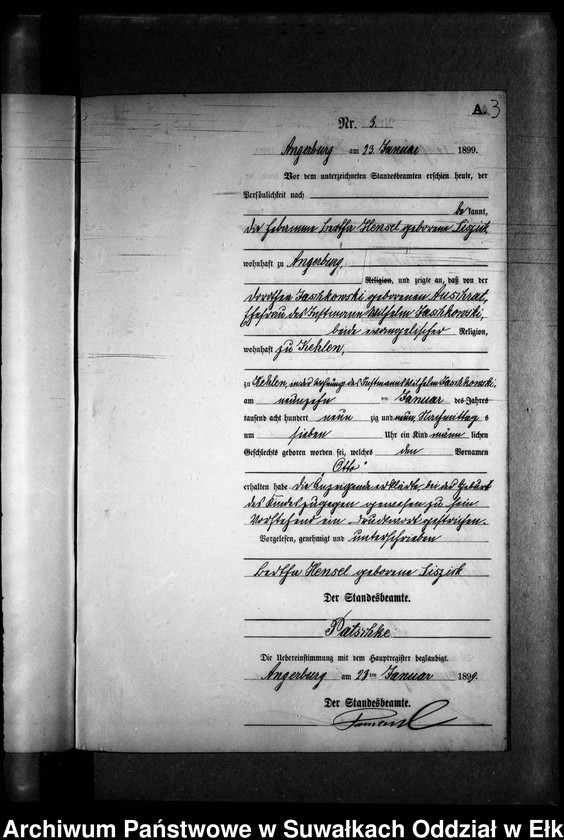 A. 3
Nr. 3.
Angerburg am 23 Januar 1899.
Vor dem unterzeichneten Standesbeamten erschien heute, der
Persönlichkeit nach
be kannt,
die Hebamme Bertha Hensel geborene Liszick
wohnhaft zu Angerburg,
Religion, und zeigte an, daß von der
Dorothea Jaschkowski geborenen Auschrat,
Ehefrau des Instmann Wilhelm Jaschkowski,
beide evangelischer Religion,
wohnhaft zu Kehlen,
zu Kehlen, in der Wohnung des Instmann Wilhelm Jaschkowski,
am neunzehn ten Januar des Jahres
tausend acht hundert neun zig und neun, Nachmittag s
um sieben Uhr ein Kind männ lichen
Geschlechts geboren worden sei, welches den Vornamen
Otto
erhalten habe. Die Anzeigende erklärte, bei der Geburt
des Kindes zugegen gewesen zu sein.
Vorstehend ein Druckwort gestrichen.
Vorgelesen, genehmigt und unterschrieben
Bertha Hensel geborene Liszick
Der Standesbeamte.
Patschke
Die Uebereinstimmung mit dem Hauptregister beglaubigt.
Angerburg am 23 ten Januar 1899.
Der Standesbeamte.
Archiwum Państwowe w Suwałkach Oddział w Ełk